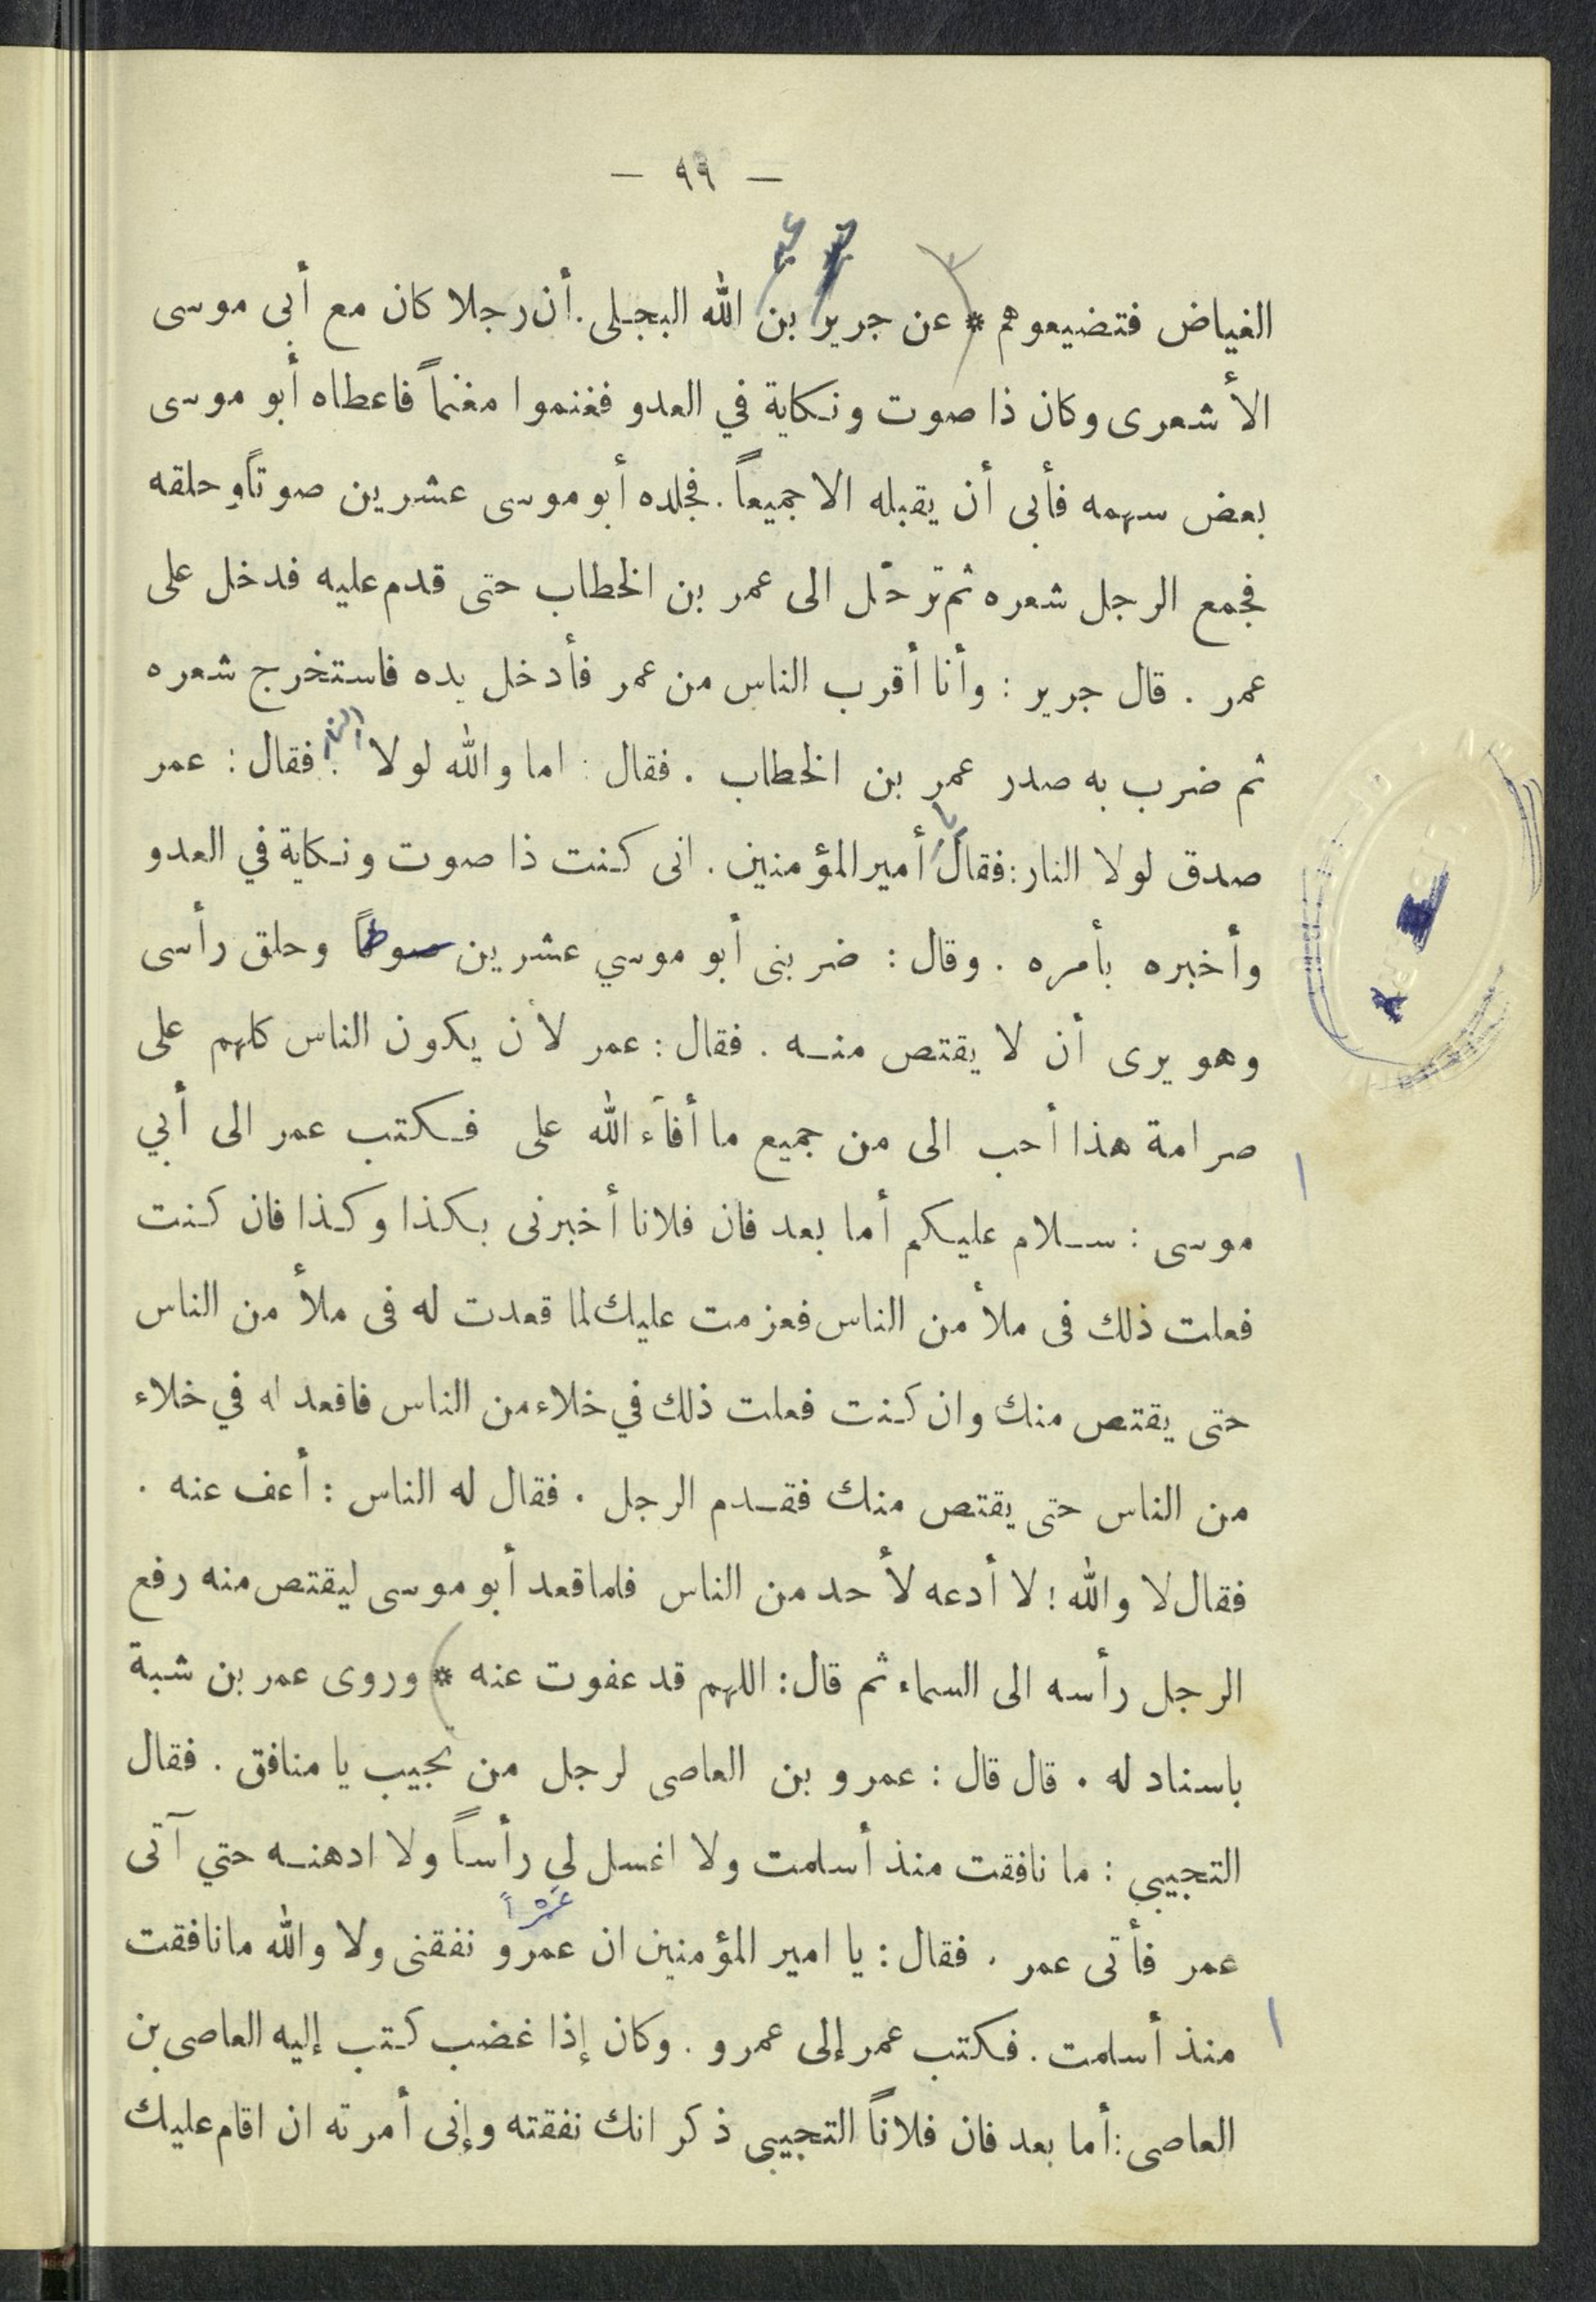 — ٩٩ —
الغياض فتضيعوهم * عن جرير بن الله البجلى. أن رجلا كان مع أبى موسى
الأشعرى وكان ذا صوت ونكاية في العدو فغنموا مغنماً فاعطاه أبو موسى
بعض سهمه فأبى أن يقبله الا جميعاً. فجلده أبو موسى عشرين صوتاً وحلقه
فجمع الرجل شعره ثم ترحّل الى عمر بن الخطاب حتى قدم عليه فدخل على
عمر . قال جرير : وأنا أقرب الناس من عمر فأدخل يده فاستخرج شعره
ثم ضرب به صدر عمر بن الخطاب . فقال : اما والله لولا النار . فقال : عمر
صدق لولا النار : فقال يا أمير المؤمنين . انى كنت ذا صوت ونكاية في العدو
وأخبره بأمره . وقال : ضربنى أبو موسي عشرين سوطاً وحلق رأسى
وهو يرى أن لا يقتص منه . فقال : عمر لأن يكون الناس كلهم على
صرامة هذا أحب الى من جميع ما أفآء الله على فكتب عمر الى أبي
موسى : سلام عليكم أما بعد فان فلانا أخبرنى بكذا وكذا فان كنت
فعلت ذلك فى ملأ من الناس فعزمت عليك لما قعدت له فى ملأ من الناس
حتى يقتص منك وان كنت فعلت ذلك في خلاء من الناس فاقعد له في خلاء
من الناس حتى يقتص منك فقدم الرجل . فقال له الناس : أعف عنه .
فقال لا والله ! لا أدعه لأحد من الناس فلما قعد أبو موسى ليقتص منه رفع
الرجل رأسه الى السماء ثم قال : اللهم قد عفوت عنه * وروى عمر بن شبة
باسناد له . قال قال : عمرو بن العاصى لرجل من تجيب يا منافق . فقال
التجيبي : ما نافقت منذ أسلمت ولا اغسل لي رأساً ولا ادهنه حتي آتى
عمر فأتى عمر . فقال : يا امير المؤمنين ان عمرو نفقنى ولا والله ما نافقت
منذ أسلمت . فكتب عمر إلى عمرو . وكان إذا غضب كتب إليه العاصى بن
العاصى : أما بعد فان فلاناً التجيبى ذكر انك نفقته وإنى أمرته ان اقام عليك